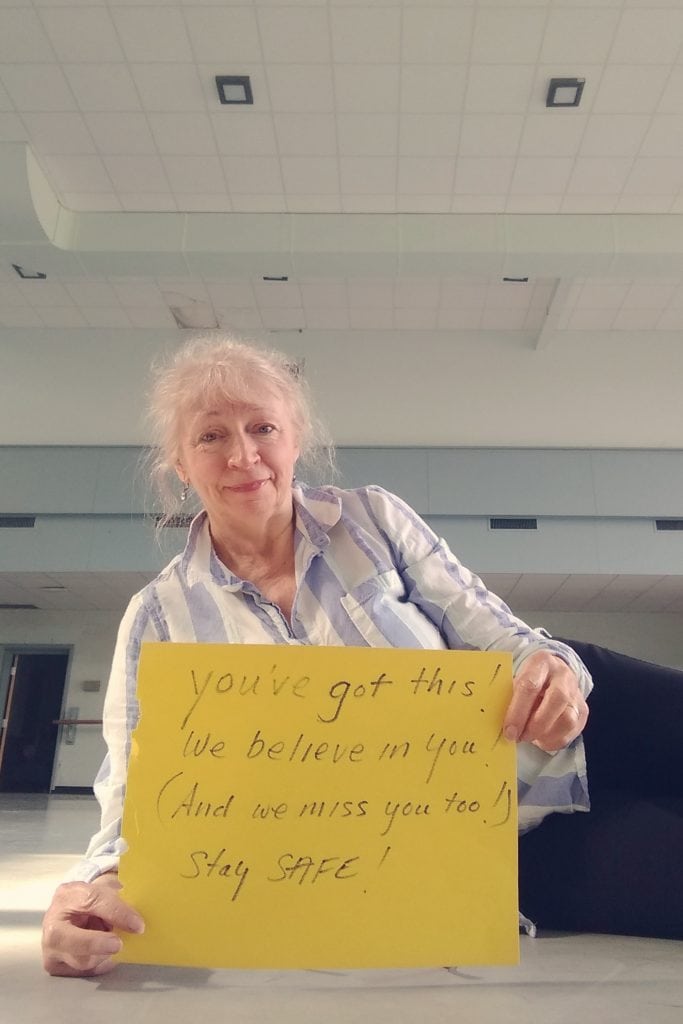 you've got this!
We believe in you!
(And we miss you too!)
Stay SAFE!